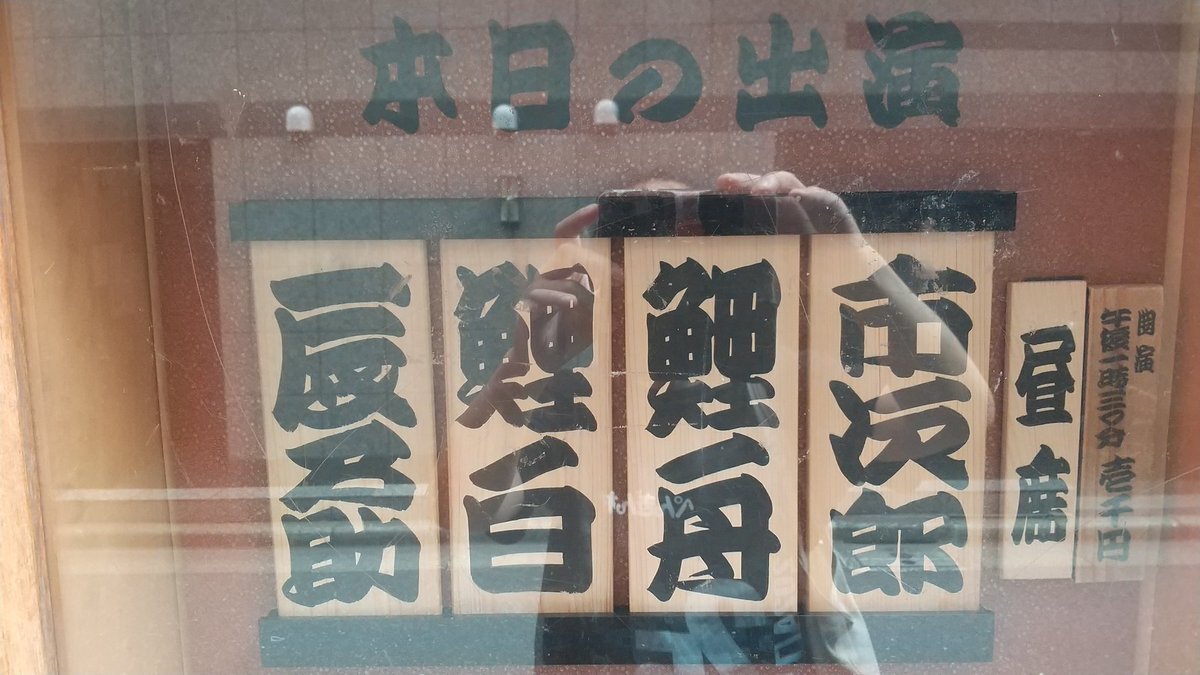 本日の出演
開演
午後一時三十分 壱千円
昼席
市次郎
鯉舟
鯉白